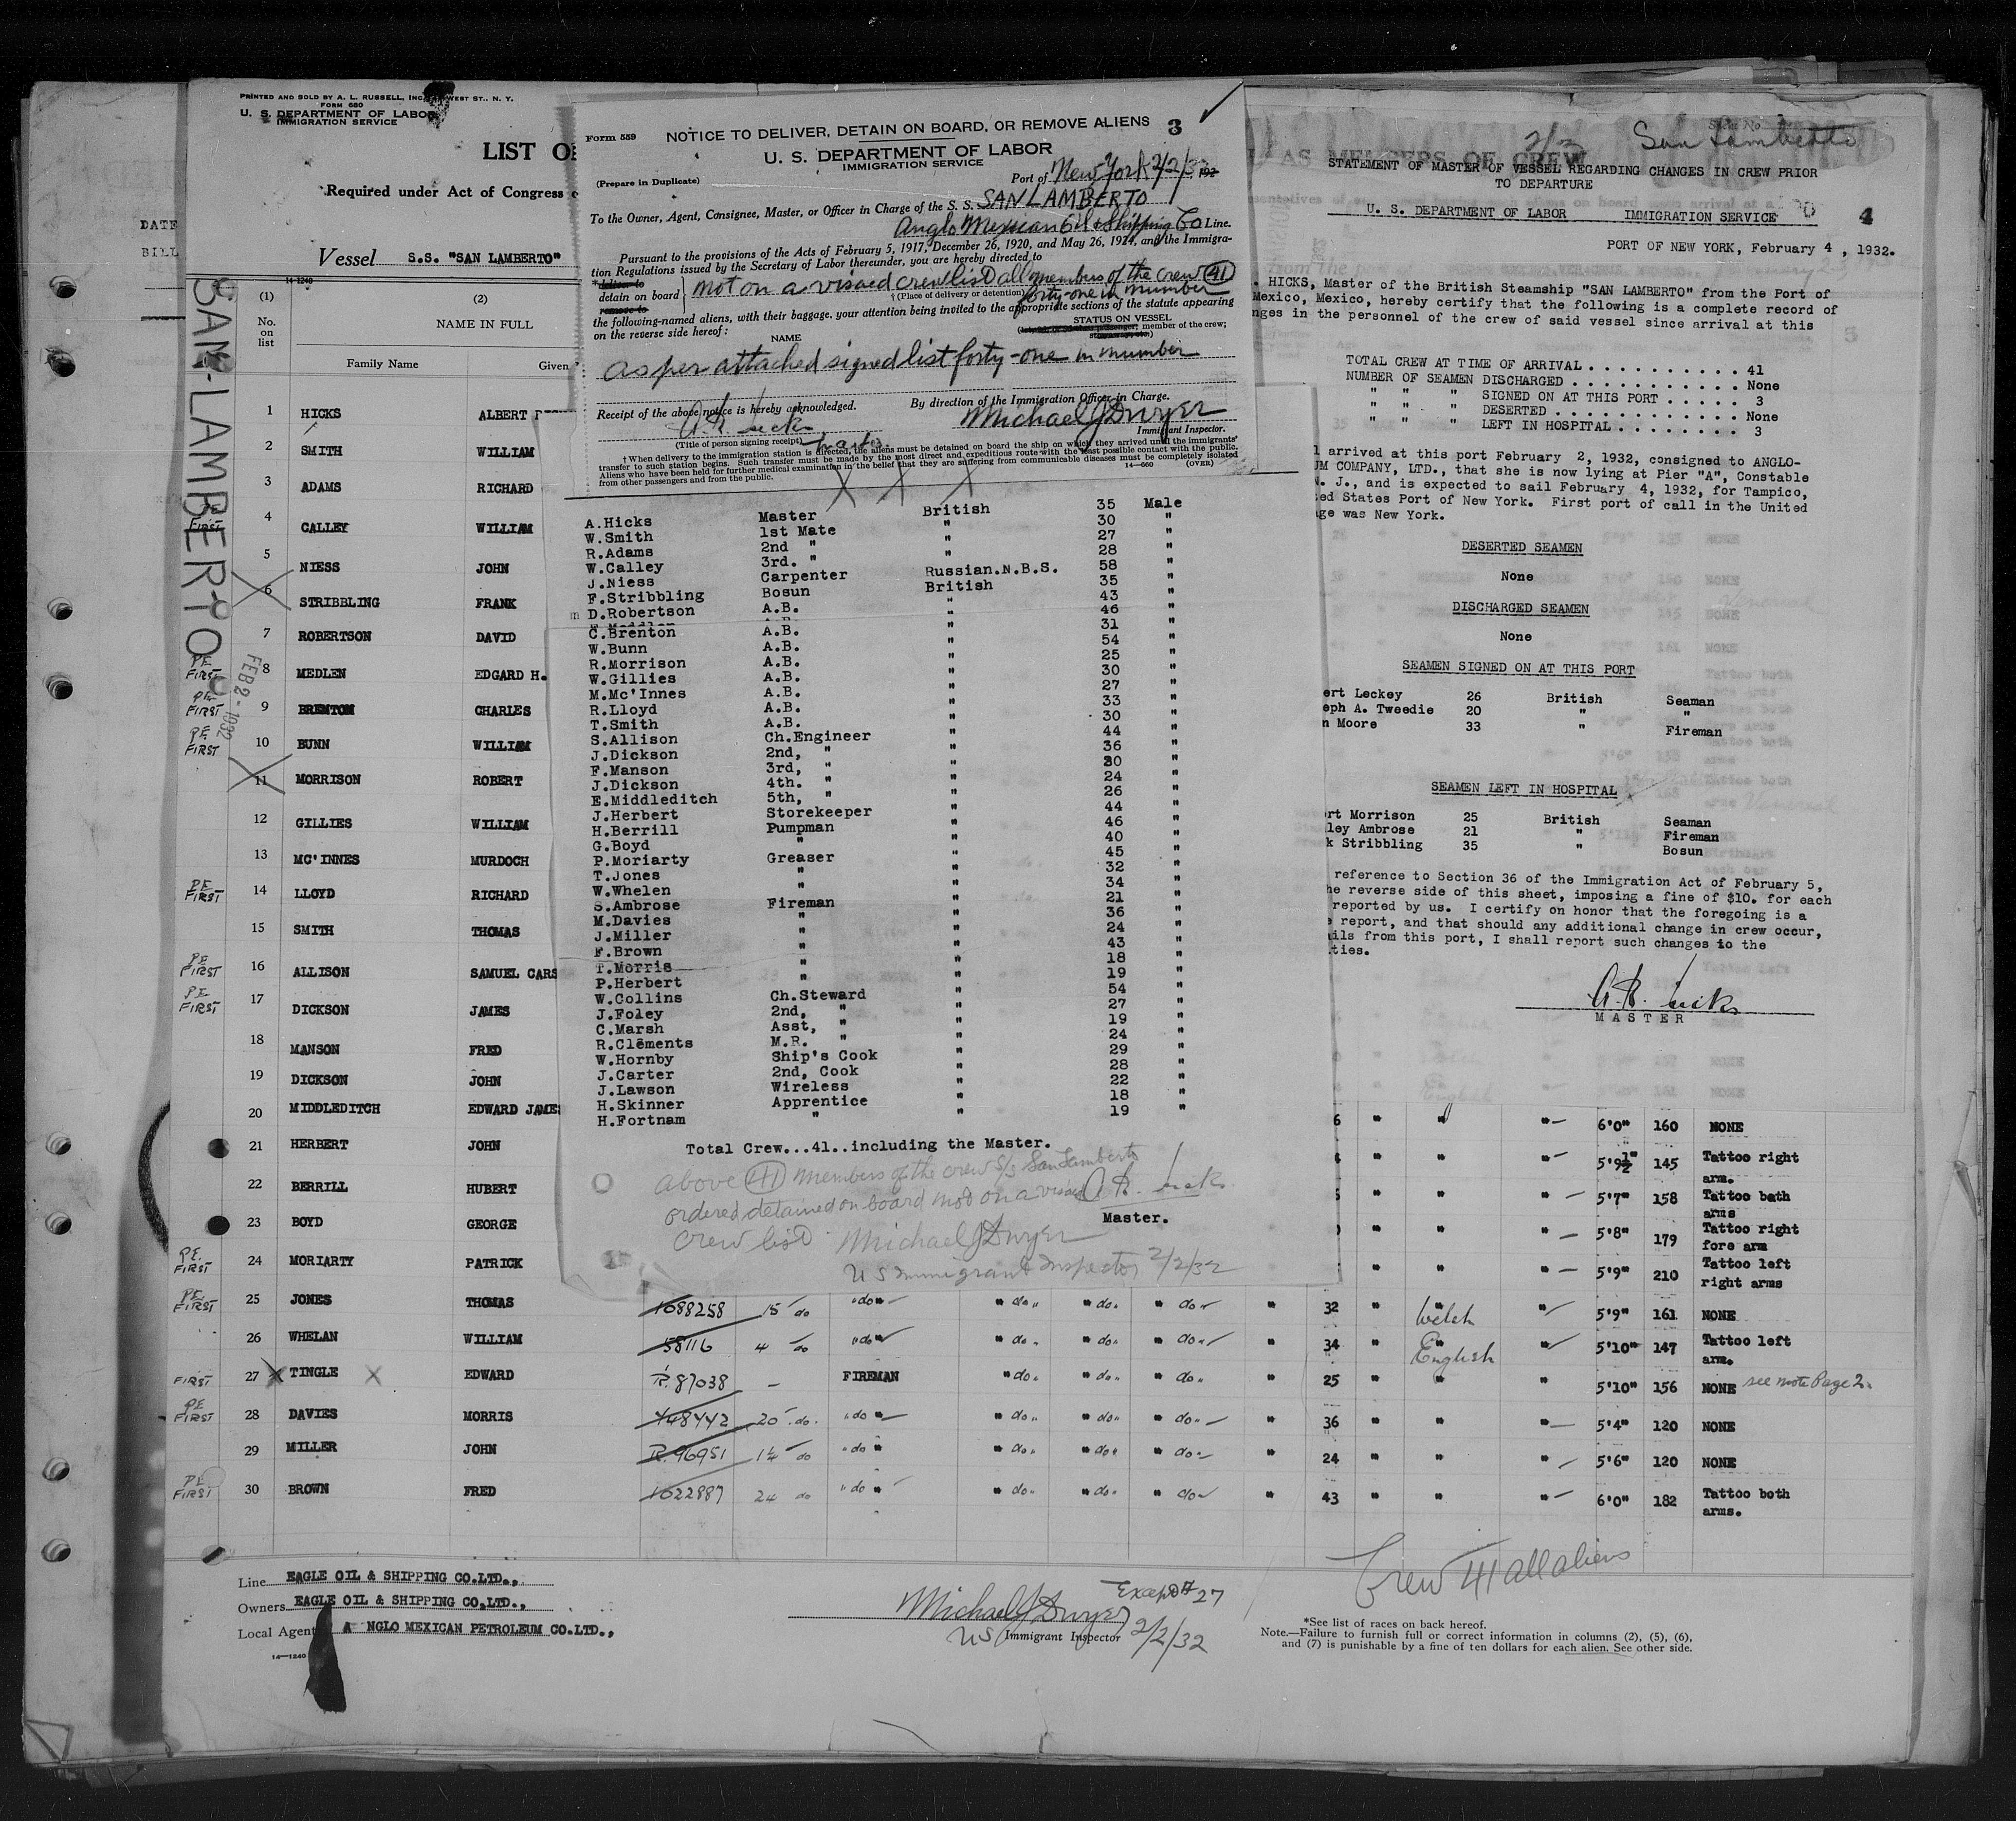 PRINTED AND SOLD BY A. L. RUSSELL, INC. WEST ST., N. Y.
FORM 680
U. S. DEPARTMENT OF LABOR
IMMIGRATION SERVICE
LIST O
Required under Act of Congress
DATE
BILL
Vessel S.S. "SAN LAMBERTO"
14-1240
SAN-LAMBERTO
FEB 2 - 1932
(1) (2)
No. on list NAME IN FULL
Family Name Given
1 HICKS ALBERT
2 SMITH WILLIAM
3 ADAMS RICHARD
FIRST 4 CALLEY WILLIAM
5 NIESS JOHN
6 STRIBBLING FRANK
7 ROBERTSON DAVID
PE FIRST 8 MEDLEN EDGARD H.
PE FIRST 9 BRENTON CHARLES
PE FIRST 10 BUNN WILLIAM
11 MORRISON ROBERT
12 GILLIES WILLIAM
13 MC'INNES MURDOCH
PE FIRST 14 LLOYD RICHARD
15 SMITH THOMAS
PE FIRST 16 ALLISON SAMUEL CARS
PE FIRST 17 DICKSON JAMES
18 MANSON FRED
19 DICKSON JOHN
20 MIDDLEDITCH EDWARD JAMES
21 HERBERT JOHN
22 BERRILL HUBERT
23 BOYD GEORGE
PE. FIRST 24 MORIARTY PATRICK
PE. FIRST 25 JONES THOMAS 1088258 15 do "do" " do " " do " " do " " 32 " Welsh " 5'9" 161 NONE
26 WHELAN WILLIAM 58116 4 do "do" " do " " do " " do " " 34 " English " 5'10" 147 Tattoo left arm.
FIRST 27 X TINGLE X EDWARD R.87038 – FIREMAN " do " " do " " do " " 25 " " " 5'10" 156 NONE see note Page 2.
PE FIRST 28 DAVIES MORRIS 448442 20 do. "do" " do " " do " " do " " 36 " " " 5'4" 120 NONE
29 MILLER JOHN R.96951 1½ do "do" " do " " do " " do " " 24 " " " 5'6" 120 NONE
PE FIRST 30 BROWN FRED 1022887 24 do "do" " do " " do " " do " " 43 " " " 6'0" 182 Tattoo both arms.
Line EAGLE OIL & SHIPPING CO.LTD.,
Owners EAGLE OIL & SHIPPING CO.LTD.,
Local Agent A NGLO MEXICAN PETROLEUM CO.LTD.,
14-1240
Michael J Dwyer Except #27
US Immigrant Inspector 2/2/32
Crew 41 all aliens
*See list of races on back hereof.
Note.—Failure to furnish full or correct information in columns (2), (5), (6),
and (7) is punishable by a fine of ten dollars for each alien. See other side.
Form 559 NOTICE TO DELIVER, DETAIN ON BOARD, OR REMOVE ALIENS 3
U. S. DEPARTMENT OF LABOR
IMMIGRATION SERVICE
(Prepare in Duplicate) Port of New York 2/2/32, 192
To the Owner, Agent, Consignee, Master, or Officer in Charge of the S. S. SAN LAMBERTO
Anglo Mexican Oil & Shipping Co Line.
Pursuant to the provisions of the Acts of February 5, 1917, December 26, 1920, and May 26, 1924, and the Immigra-
tion Regulations issued by the Secretary of Labor thereunder, you are hereby directed to
*deliver to
detain on board
remove to
not on a visaed crew list all members of the crew (41)
†(Place of delivery or detention) forty-one in number
the following-named aliens, with their baggage, your attention being invited to the appropriate sections of the statute appearing
on the reverse side hereof:
NAME
STATUS ON VESSEL
member of the crew;
as per attached signed list forty-one in number
Receipt of the above notice is hereby acknowledged. By direction of the Immigration Officer in Charge.
A. R. Hicks Michael J Dwyer
Immigrant Inspector.
(Title of person signing receipt) Master
†When delivery to the immigration station is directed, the aliens must be detained on board the ship on which they arrived until the immigrants'
transfer to such station begins. Such transfer must be made by the most direct and expeditious route with the least possible contact with the public.
Aliens who have been held for further medical examination in the belief that they are suffering from communicable diseases must be completely isolated
from other passengers and from the public.
14-660 (OVER)
X X X
A.Hicks Master British 35 Male
W.Smith 1st Mate " 30 "
R.Adams 2nd " " 27 "
W.Calley 3rd. " " 28 "
J.Niess Carpenter Russian.N.B.S. 58 "
F.Stribbling Bosun British 35 "
D.Robertson A.B. " 43 "
46 "
C.Brenton A.B. " 31 "
W.Bunn A.B. " 54 "
R.Morrison A.B. " 25 "
W.Gillies A.B. " 30 "
M.Mc'Innes A.B. " 27 "
R.Lloyd A.B. " 33 "
T.Smith A.B. " 30 "
S.Allison Ch.Engineer " 44 "
J.Dickson 2nd, " " 36 "
F.Manson 3rd, " " 30 "
J.Dickson 4th. " " 24 "
E.Middleditch 5th, " " 26 "
J.Herbert Storekeeper " 44 "
H.Berrill Pumpman " 46 "
G.Boyd " " 40 "
P.Moriarty Greaser " 45 "
T.Jones " " 32 "
W.Whelen " " 34 "
S.Ambrose Fireman " 21 "
M.Davies " " 36 "
J.Miller " " 24 "
F.Brown " " 43 "
T.Morris " " 18 "
P.Herbert " " 19 "
W.Collins Ch.Steward " 54 "
J.Foley 2nd, " " 27 "
C.Marsh Asst, " " 19 "
R.Clements M.R. " " 24 "
W.Hornby Ship's Cook " 29 "
J.Carter 2nd, Cook " 28 "
J.Lawson Wireless " 22 "
H.Skinner Apprentice " 18 "
H.Fortnam " " 19 "
Total Crew...41..including the Master.
above (41) members of the crew S/S San Lamberto
ordered detained on board not on a visaed A. R. Hicks
crew list Master.
Michael J Dwyer
US Immigrant Inspector 2/2/32
2/3 San Lamberto
AS MEMBERS OF CREW
STATEMENT OF MASTER OF VESSEL REGARDING CHANGES IN CREW PRIOR
TO DEPARTURE
U. S. DEPARTMENT OF LABOR IMMIGRATION SERVICE 4
PORT OF NEW YORK, February 4 , 1932.
. HICKS, Master of the British Steamship "SAN LAMBERTO" from the Port of
Mexico, Mexico, hereby certify that the following is a complete record of
nges in the personnel of the crew of said vessel since arrival at this
TOTAL CREW AT TIME OF ARRIVAL . . . . . . . . . . 41
NUMBER OF SEAMEN DISCHARGED . . . . . . . . . . . None
" " " SIGNED ON AT THIS PORT . . . . . 3
" " " DESERTED . . . . . . . . . . . . None
" " " LEFT IN HOSPITAL . . . . . . . . 3
l arrived at this port February 2, 1932, consigned to ANGLO-
UM COMPANY, LTD., that she is now lying at Pier "A", Constable
N. J., and is expected to sail February 4, 1932, for Tampico,
ted States Port of New York. First port of call in the United
age was New York.
DESERTED SEAMEN
None
DISCHARGED SEAMEN
None
SEAMEN SIGNED ON AT THIS PORT
ert Leckey 26 British Seaman
eph A. Tweedie 20 " "
n Moore 33 " Fireman
SEAMEN LEFT IN HOSPITAL
rt Morrison 25 British Seaman
ley Ambrose 21 " Fireman
k Stribbling 35 " Bosun
reference to Section 36 of the Immigration Act of February 5,
he reverse side of this sheet, imposing a fine of $10. for each
reported by us. I certify on honor that the foregoing is a
e report, and that should any additional change in crew occur,
ils from this port, I shall report such changes to the
ties.
A. R. Hicks
MASTER
6 " " " 6'0" 160 NONE
" " 5'9½" 145 Tattoo right arm.
" " 5'7" 158 Tattoo both arms
" " 5'8" 179 Tattoo right fore arm
" " 5'9" 210 Tattoo left right arms